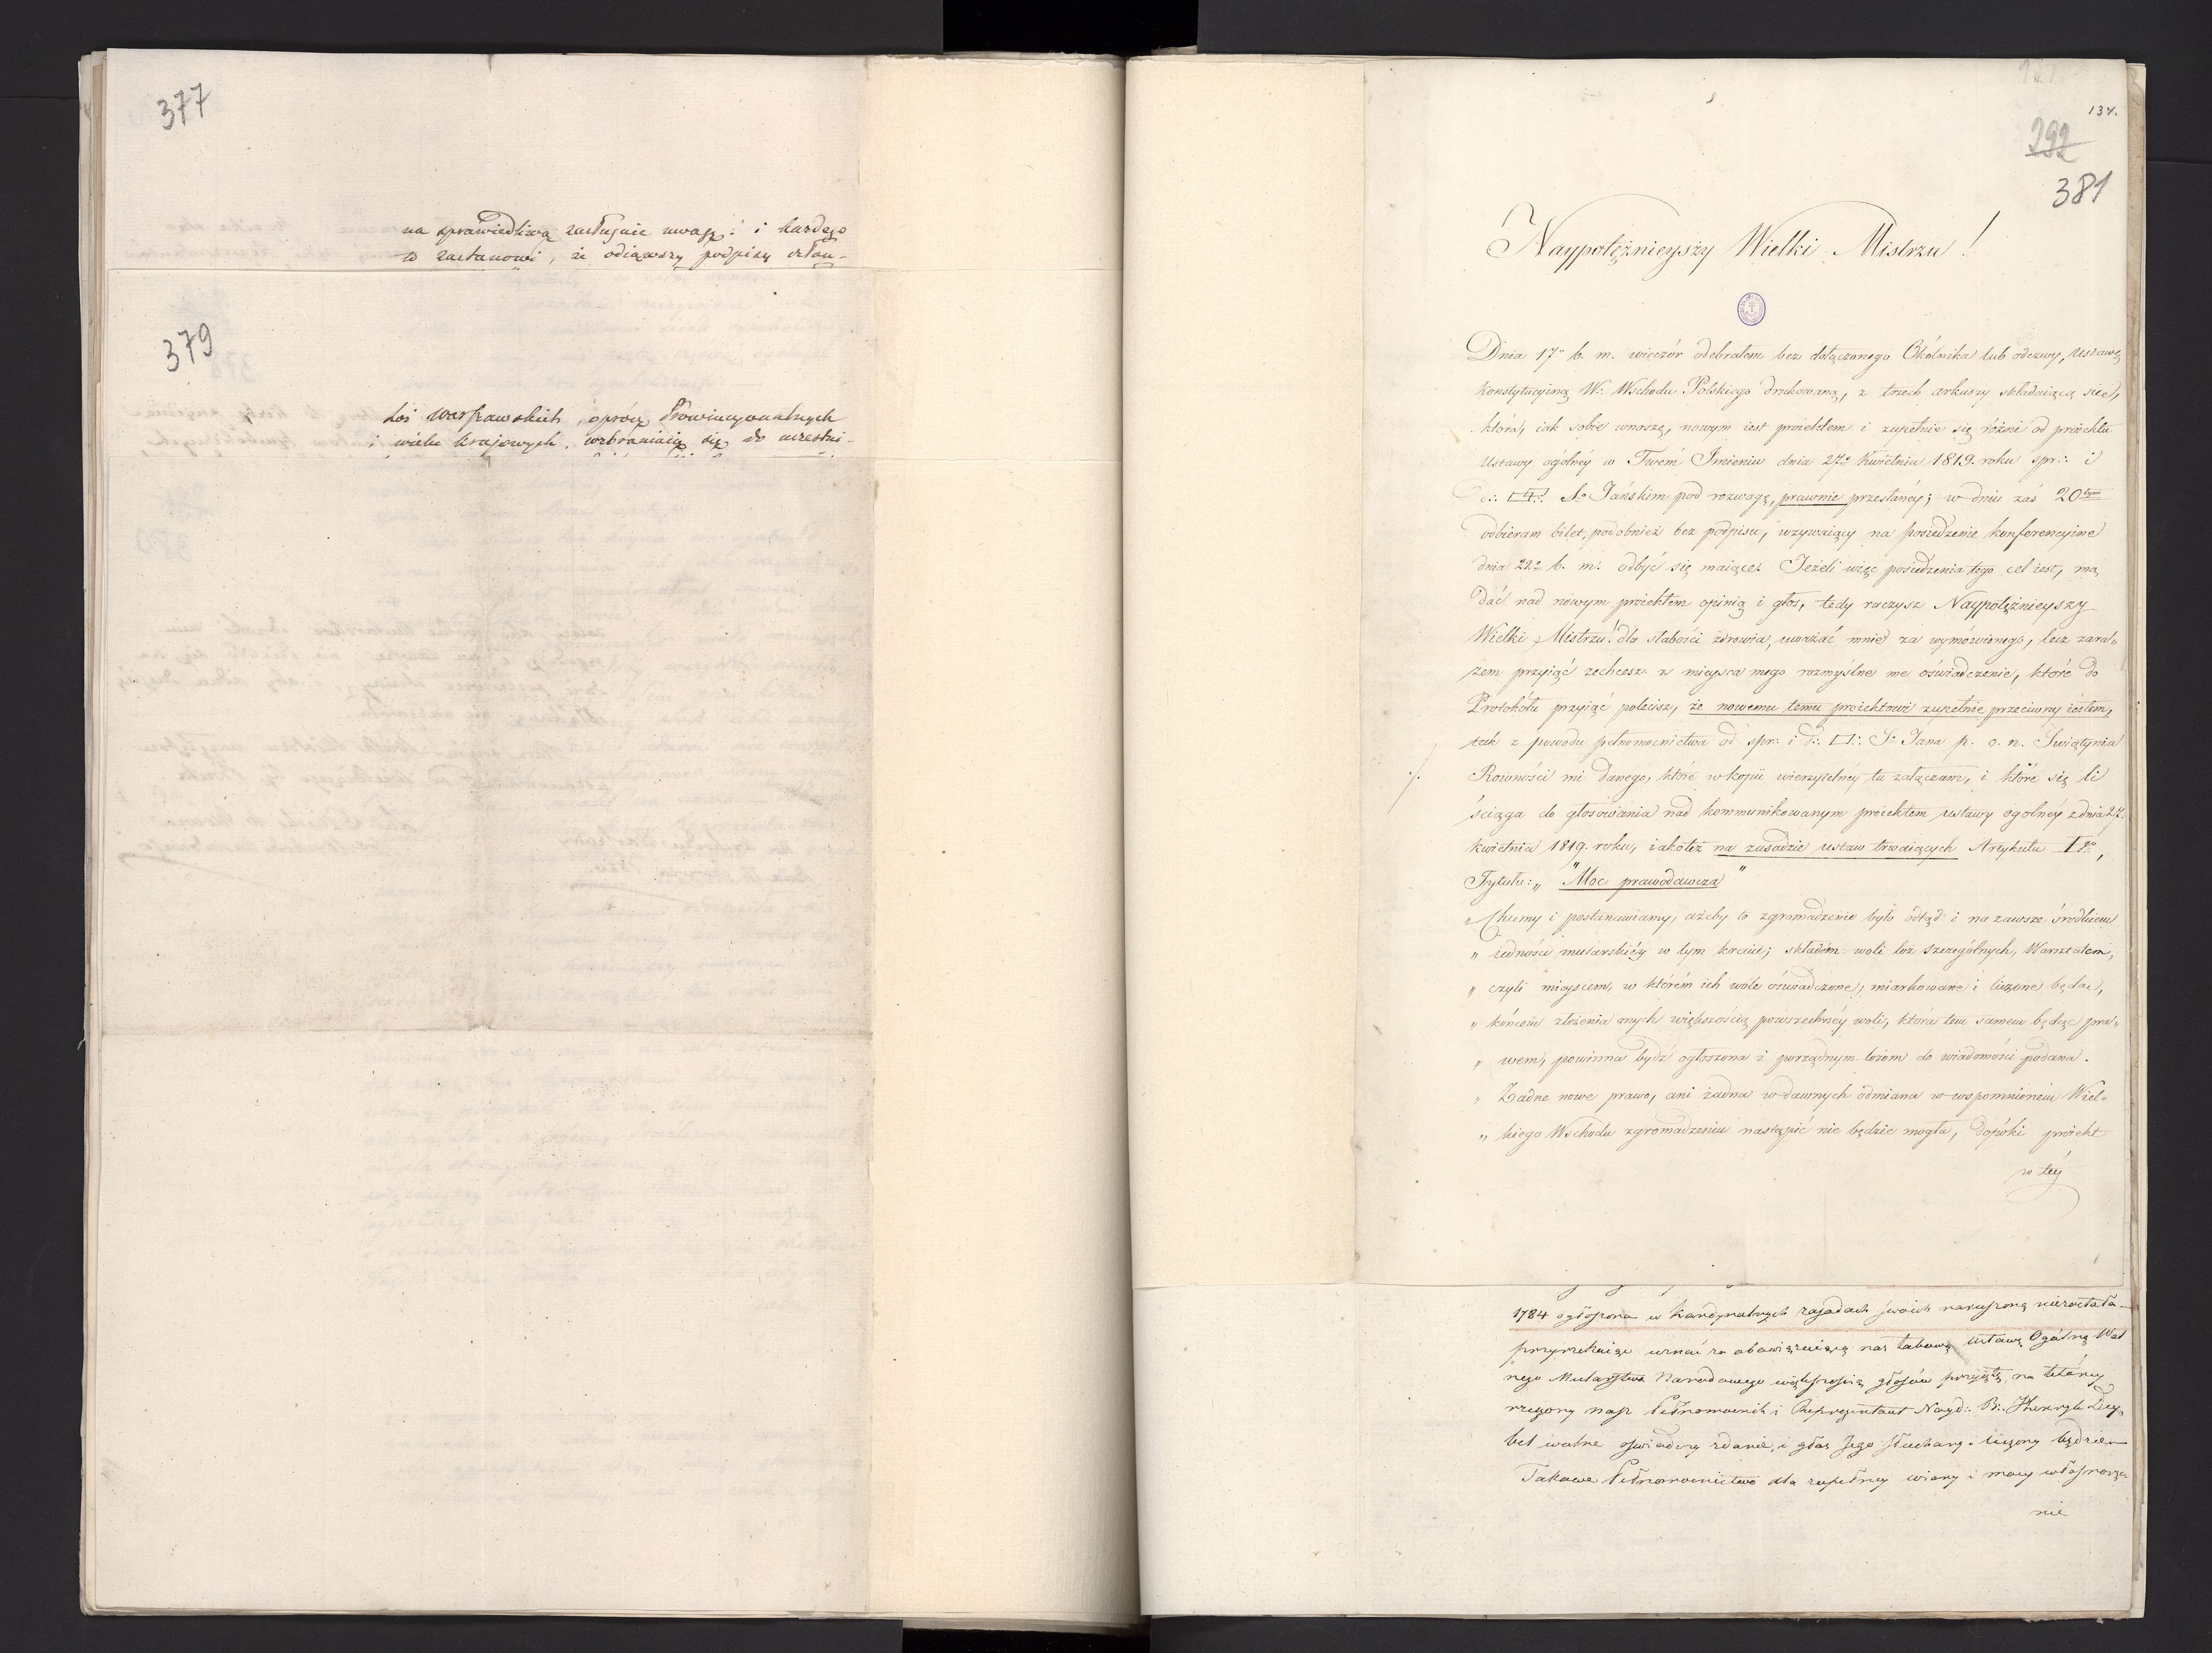 377
na sprawiedliwą zasługuie uwagę: i każdego
to zastanowi, że odiąwszy podpisy człon-
379
Loż Warszawskich, oprócz Prowincyonalnych
i wielu krajowych, wzbraniaią się do uczestni-
134.
292
381
Naypotężnieyszy Wielki Mistrzu!
Dnia 17º b. m. wieczór odebrałem bez dołączonego Okólnika lub odezwy, ustawę
Konstytucyiną W: Wschodu Polskiego drukowaną, z trzech arkuszy składaiącą się,
która, iak sobie wnoszę, nowym iest proiektem i zupełnie się różni od proiektu
Ustawy ogólnéy w Twém Imieniu dnia 27º Kwietnia 1819. roku spr: i
d: Sº Jańskim pod rozwagę, prawnie przesłanéy; w dniu zaś 20tym
odbieram bilet, podobnież bez podpisu, wzywaiący na posiedzenie konferencyine
dnia 22º b. m. odbyć się maiące. Jeżeli więc posiedzenia tego cel iest, ma
dać nad nowym proiektem opinią i głos, tedy raczysz Naypotężnieyszy
Wielki Mistrzu! dla słabości zdrowia, uważać mnie za wymówionego, lecz zara„
zem przyiąć zechcesz z mieysca mego rozmyślne me oświadczenie, które do
Protokółu przyiąć polecisz, że nowemu temu proiektowi zupełnie przeciwny iestem,
tak z powodu pełnomocnictwa od spr: i d: Sº Jana p. o. n. Swiątynia
Rowności mi danego, które w kopii wierzytelnéy tu załączam, i które się li
ściąga do głosowania nad kommunikowanym proiektem ustawy ogólnéy z dnia 27.
kwietnia 1819. roku, iakoteż na zasadzie ustaw trwaiących Artykułu Igo,
Tytułu: „ "Moc prawodawcza"
„ Chcemy i postanawiamy, ażeby to zgromadzenie było odtąd i na zawsze środkiem
„ iedności mularskiéy w tym kraiu; składem woli loż szczególnych, Warsztatem,
„ czyli mieyscem, w którém ich wole oświadczone, miarkowane i liczone będą,
„ końcem złożenia onych większością powszechnéy woli, która tem samem będąc pra„
„ wem, powinna bydź ogłoszona i porządnym lożom do wiadomości podana.
„ Żadne nowe prawo, ani żadna w dawnych odmiana w wspomnioném Wiel„
„ kiego Wschodu zgromadzeniu nastąpić nie będzie mogła, dopóki proiekt
w téy
1784 ogłoszona w Kardynalnych zasadach swoich naruszoną niezostała
przyrzekaiąc uznać za obowiązuiącą nas takową Ustawę Ogólną Wol
nego Mularstwa Narodowego większością głosów przyiętą, na któréy
rzeczony nasz Pełnomocnik i Reprezentant Nayd: B: Henryk
wolne oświadczy zdanie, i głos Jego słuchany i liczony będzie
Takowe Pełnomocnictwo dla zupełney wiary i mocy własnoręcz
nie